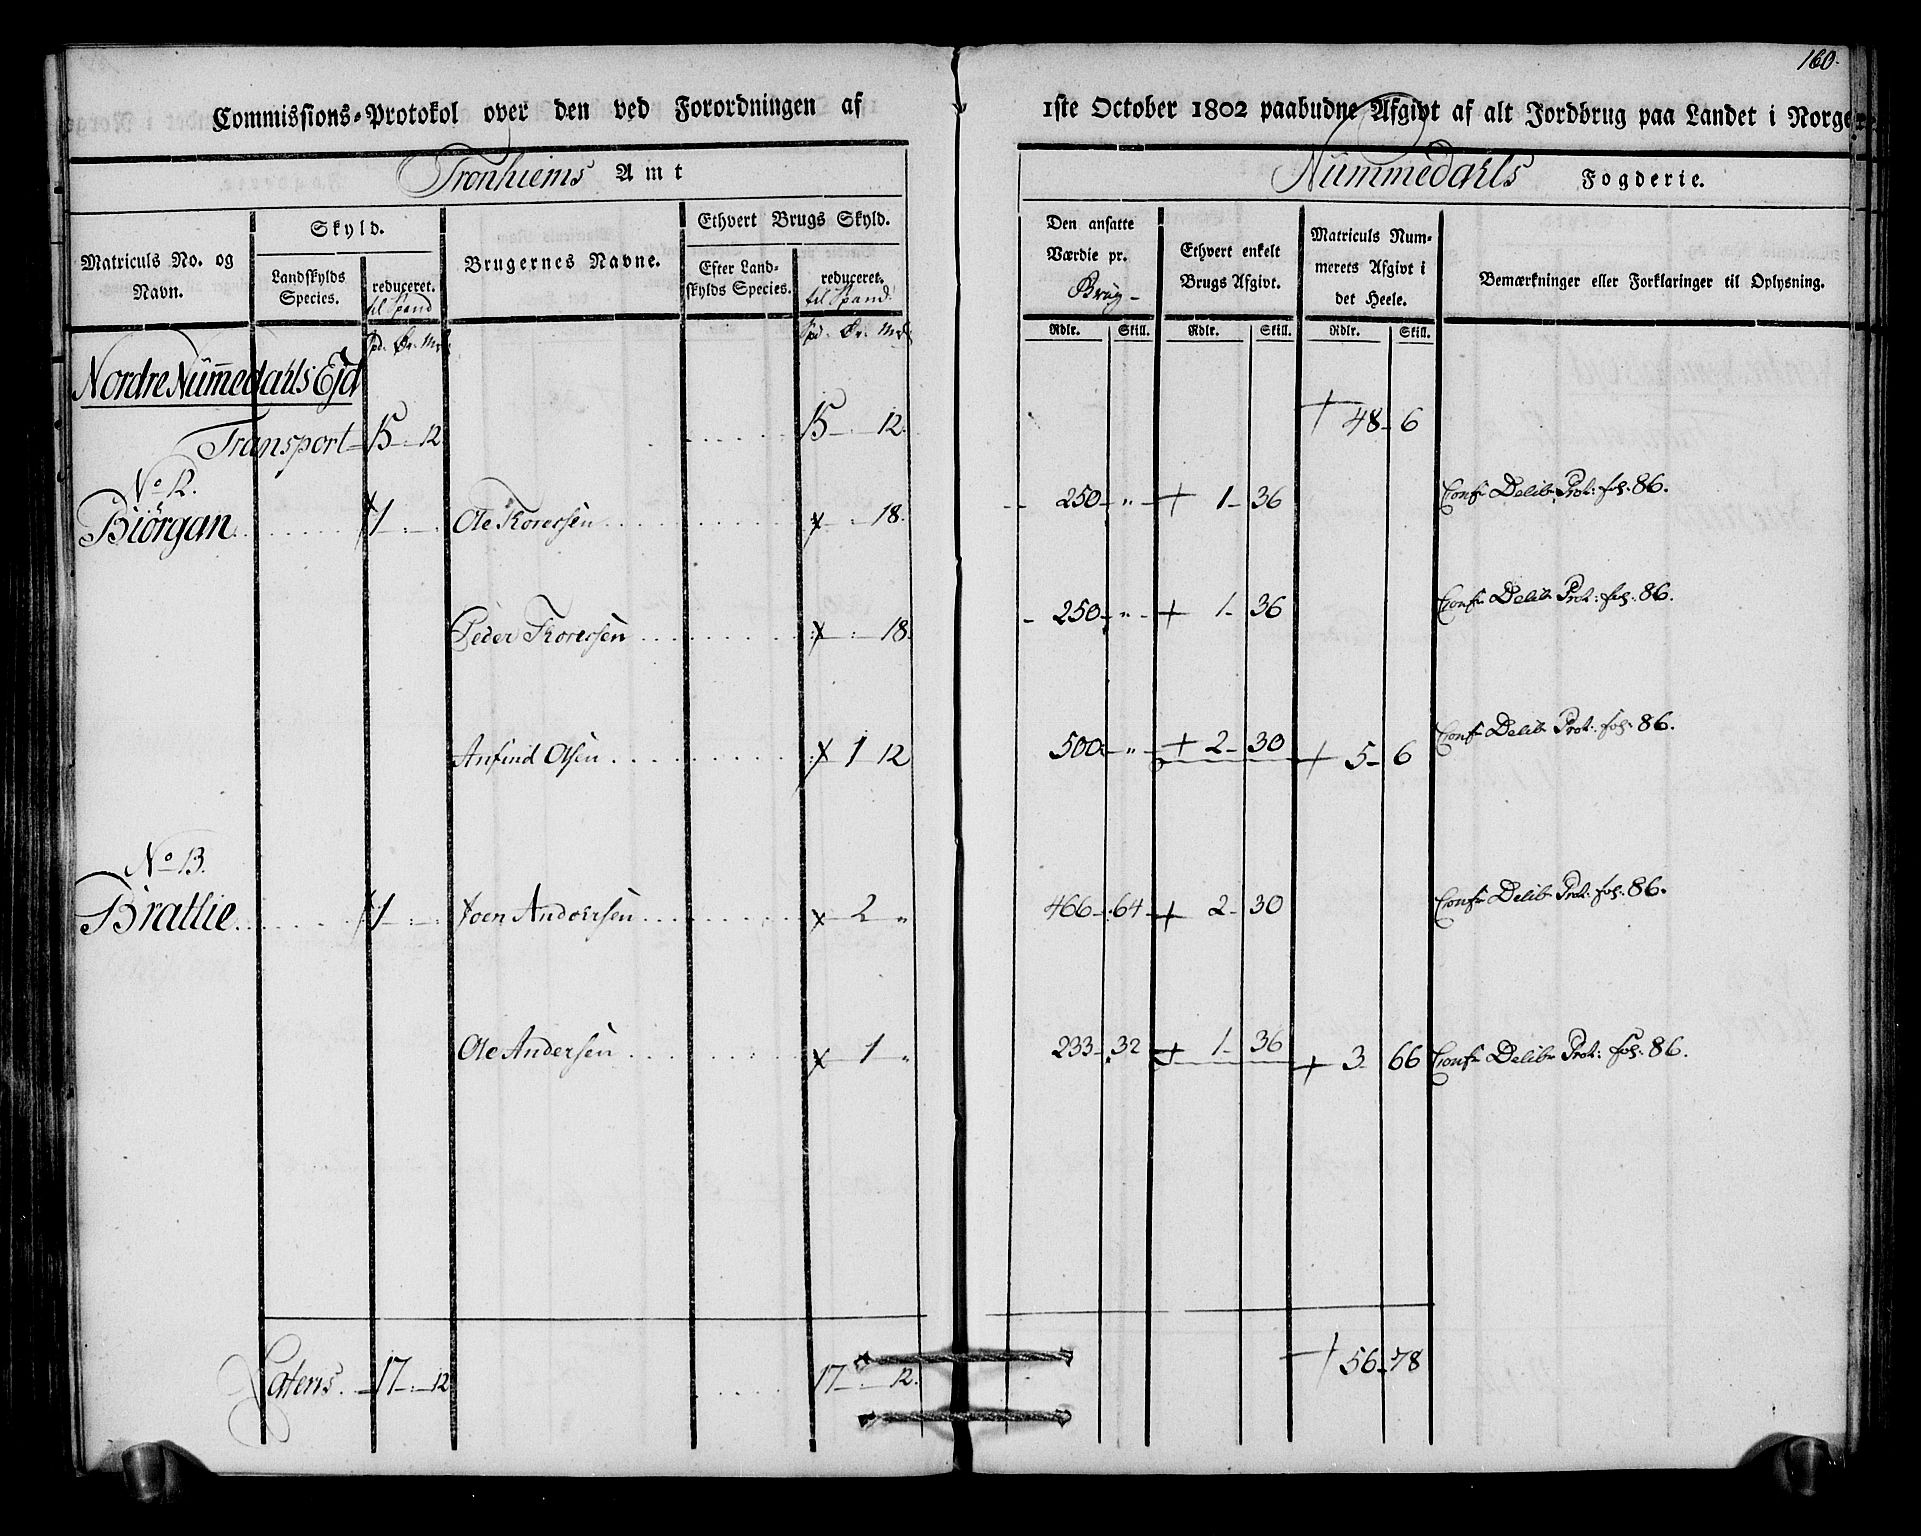 160.
Commissions-Protokol over den ved Forordningen af 1ste October 1802 paabudne Afgivt af alt Jordbrug paa Landet i Norge
Tronhiems Amt
Nummedahls Fogderie.
Matriculs No. og Navn.
Skyld.
Landskylds Species.
reduceret. til Spand
Brugernes Navne.
Ethvert Brugs Skyld.
Efter Landskylds Species.
reduceret. til Spand.
Den ansatte Værdie pr. Brug-
Ethvert enkelt Brugs Afgivt.
Matriculs Nummerets Afgivt i det Heele.
Bemærkninger eller Forklaringer til Oplysning.
Spd. Ør. Mrk
Spd. Ør. Mrk
Rdlr. Skill. Rdlr. Skill. Rdlr. Skill.
Nordre Nummedahls Ejd
Transport 15 - : - 12 15 - : - 12. + 48 - 6
No 12.
Biörgan 1 - : - Ole Thoresen 18. 250 - " + 1 - 36 Conf: Delib: Prot: fol: 86.
Peder Thoresen 18. 250 - " + 1 - 36 Conf: Delib: Prot: fol: 86.
Anfind Olsen 1 12 500 - " + 2 - 30 + 5 - 6 Conf: Delib: Prot: fol: 86.
No 13.
Bratlie 1 - : - Joen Andersen 2 " 466 - 64 + 2 - 30 Conf: Delib: Prot: fol: 86.
Ole Andersen 1 " 233 - 32 + 1 - 36 + 3 - 66 Conf: Delib: Prot: fol: 86.
Lateris. 17 - : - 12 17 - : - 12. + 56 - 78